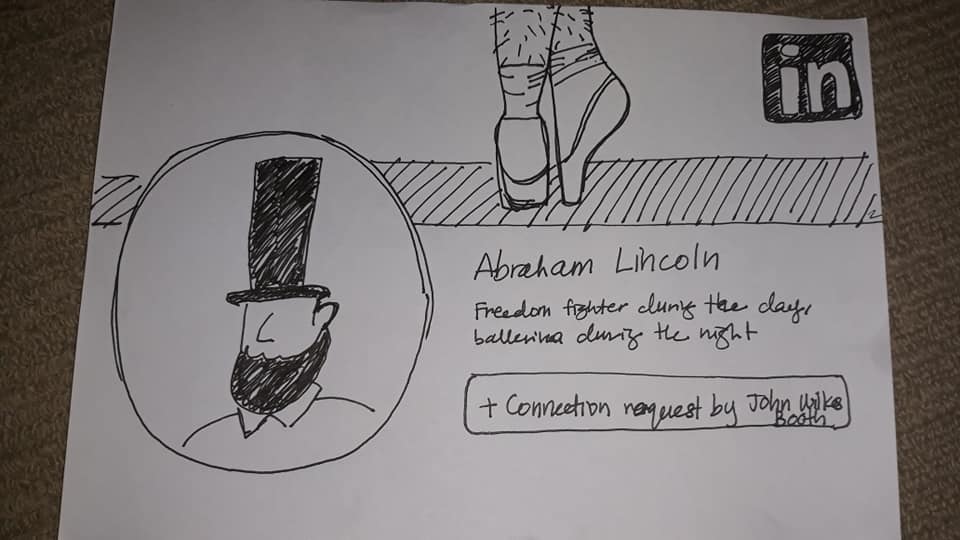 in
Abraham Lincoln
Freedom fighter during the day,
ballerina during the night
+ Connection request by John Wilkes
Booth